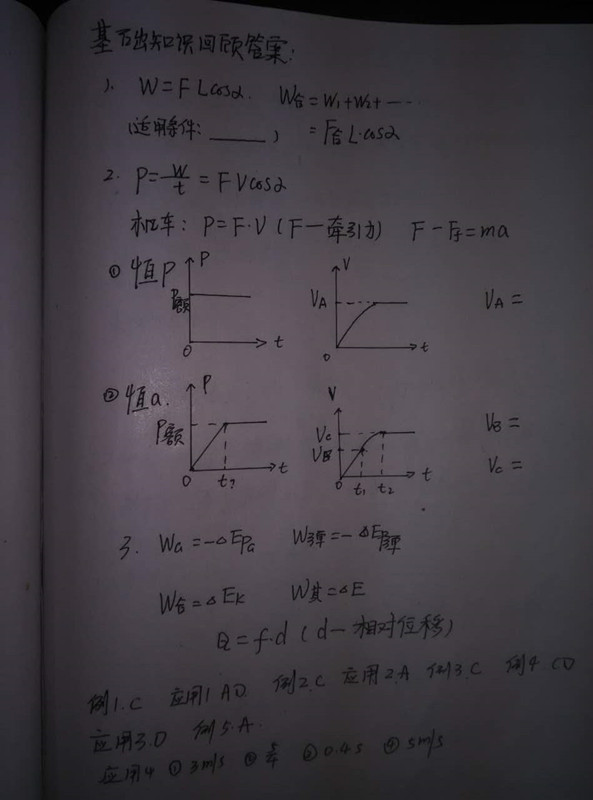 基础知识回顾答案:
1. W=FLcosα. W合=W₁+W₂+······
(适用条件: ______ ) =F合L·cosα
2. P=W/t=FVcosα
机车: P=F·V (F—牵引力) F-Ff=ma
① 恒P P P额 O t V VA O t VA=
② 恒a. P P额 O t? t V Vc VB O t₁ t₂ t VB= Vc=
3. WG=-ΔEPG W弹=-ΔEP弹
W合=ΔEk W其=ΔE
Q=f·d (d—相对位移)
例1.C 应用1 AD 例2.C 应用2.A 例3.C 例4 CD
应用3.D 例5.A.
应用4 ① 3m/s ② ③ 0.4s ④ 5m/s